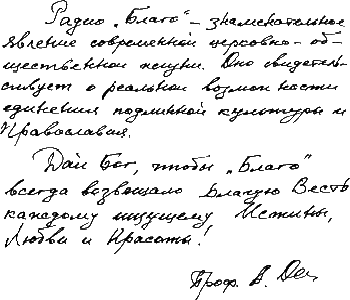 Радио „Благо“ – знаменательное
явление современной церковно-об-
щественной жизни. Оно свидетель-
ствует о реальной возможности
единения подлинной культуры и
Православия.
Дай Бог, чтобы „Благо“
всегда возвещало Благую Весть
каждому ищущему Истины,
Любви и Красоты!
Проф. А.